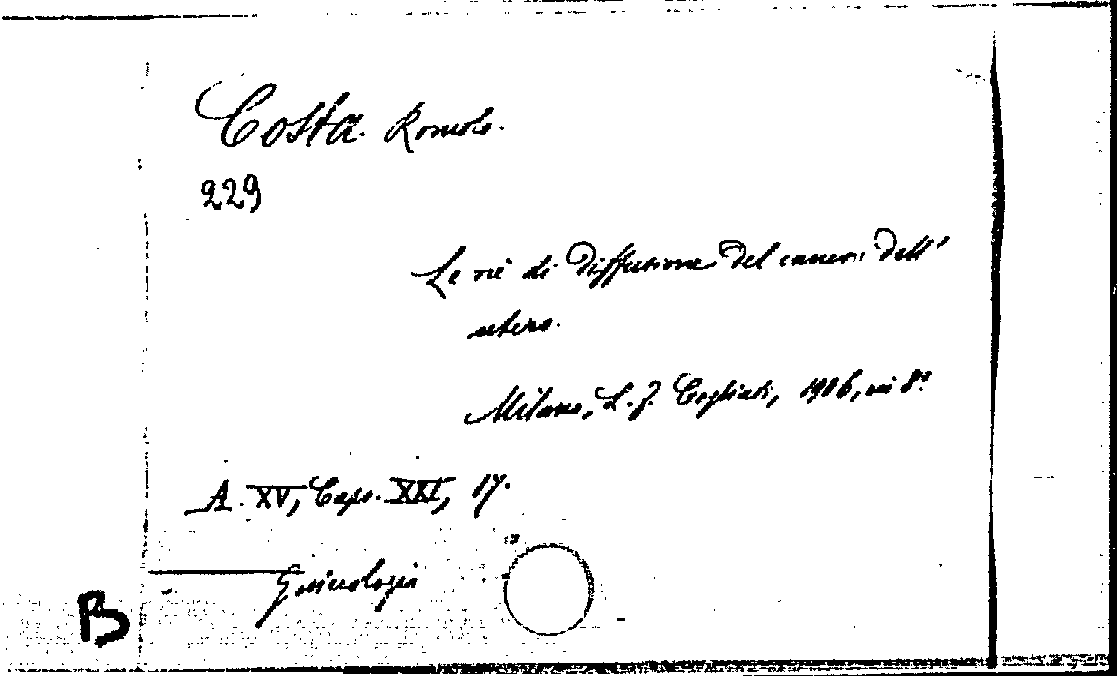 Costa. Romolo.
229
Le vie di diffusione del cancro dell'
utero.
Milano, L. F. Cogliati, 1906, in 8°.
A. XV, Caps. XXI, 17.
Ginecologia
B